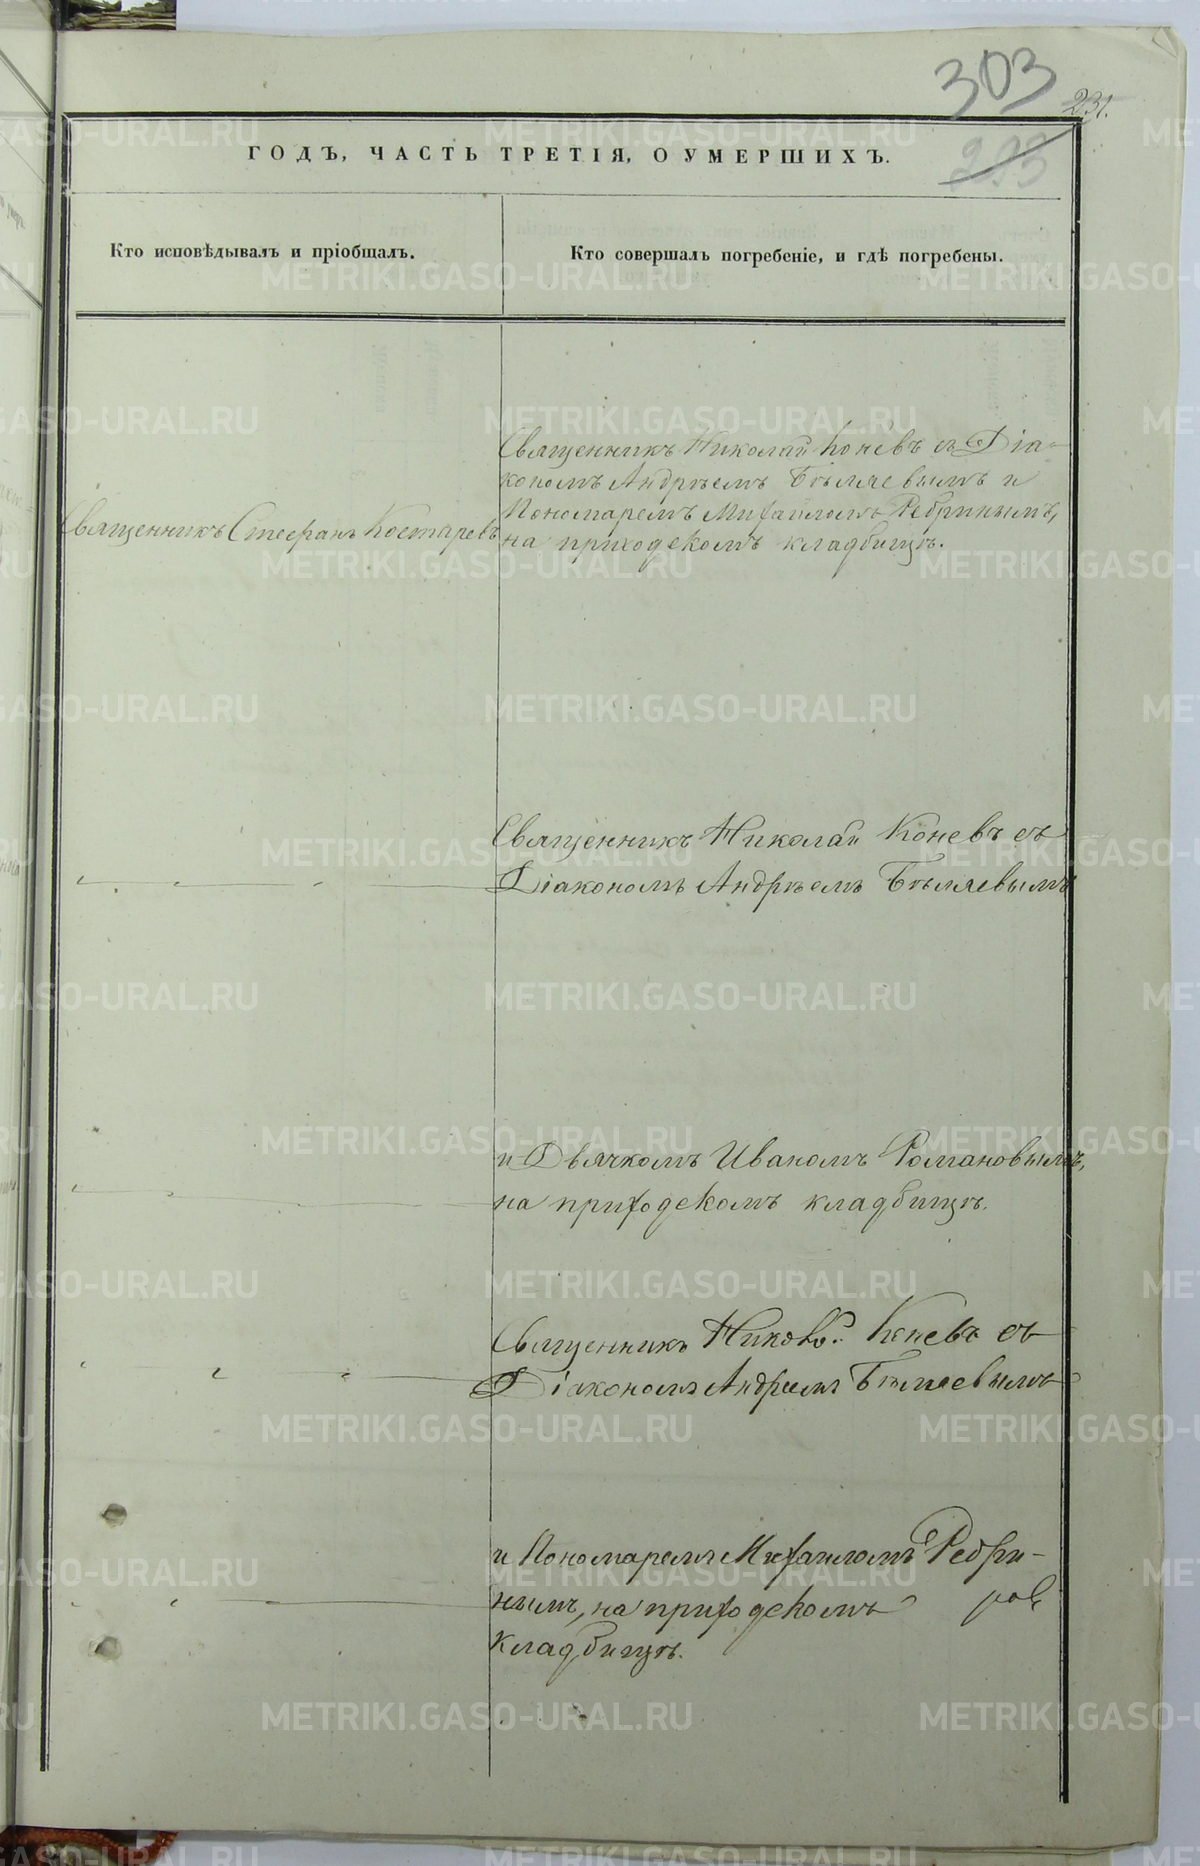 303
231.
293
ГОДЪ, ЧАСТЬ ТРЕТІЯ, О УМЕРШИХЪ.
Кто исповѣдывалъ и пріобщалъ.
Кто совершалъ погребеніе, и гдѣ погребены.
Священникъ Николай Коневъ съ Діа-
кономъ Андрѣемъ Бѣляевымъ и
Пономаремъ Михаиломъ Ребринымъ,
Священникъ Стефанъ Костаревъ
на приходскомъ кладбищѣ.
Священникъ Николай Коневъ съ
Діакономъ Андрѣемъ Бѣляевымъ
и Дьячкомъ Иваномъ Романовымъ,
на приходскомъ кладбищѣ.
Священникъ Коневъ съ
Діакономъ Андреемъ Бѣляевымъ
и Пономаремъ Михаиломъ Ребри-
нымъ, на приходскомъ
кладбищѣ.
METRIKI.GASO-URAL.RU